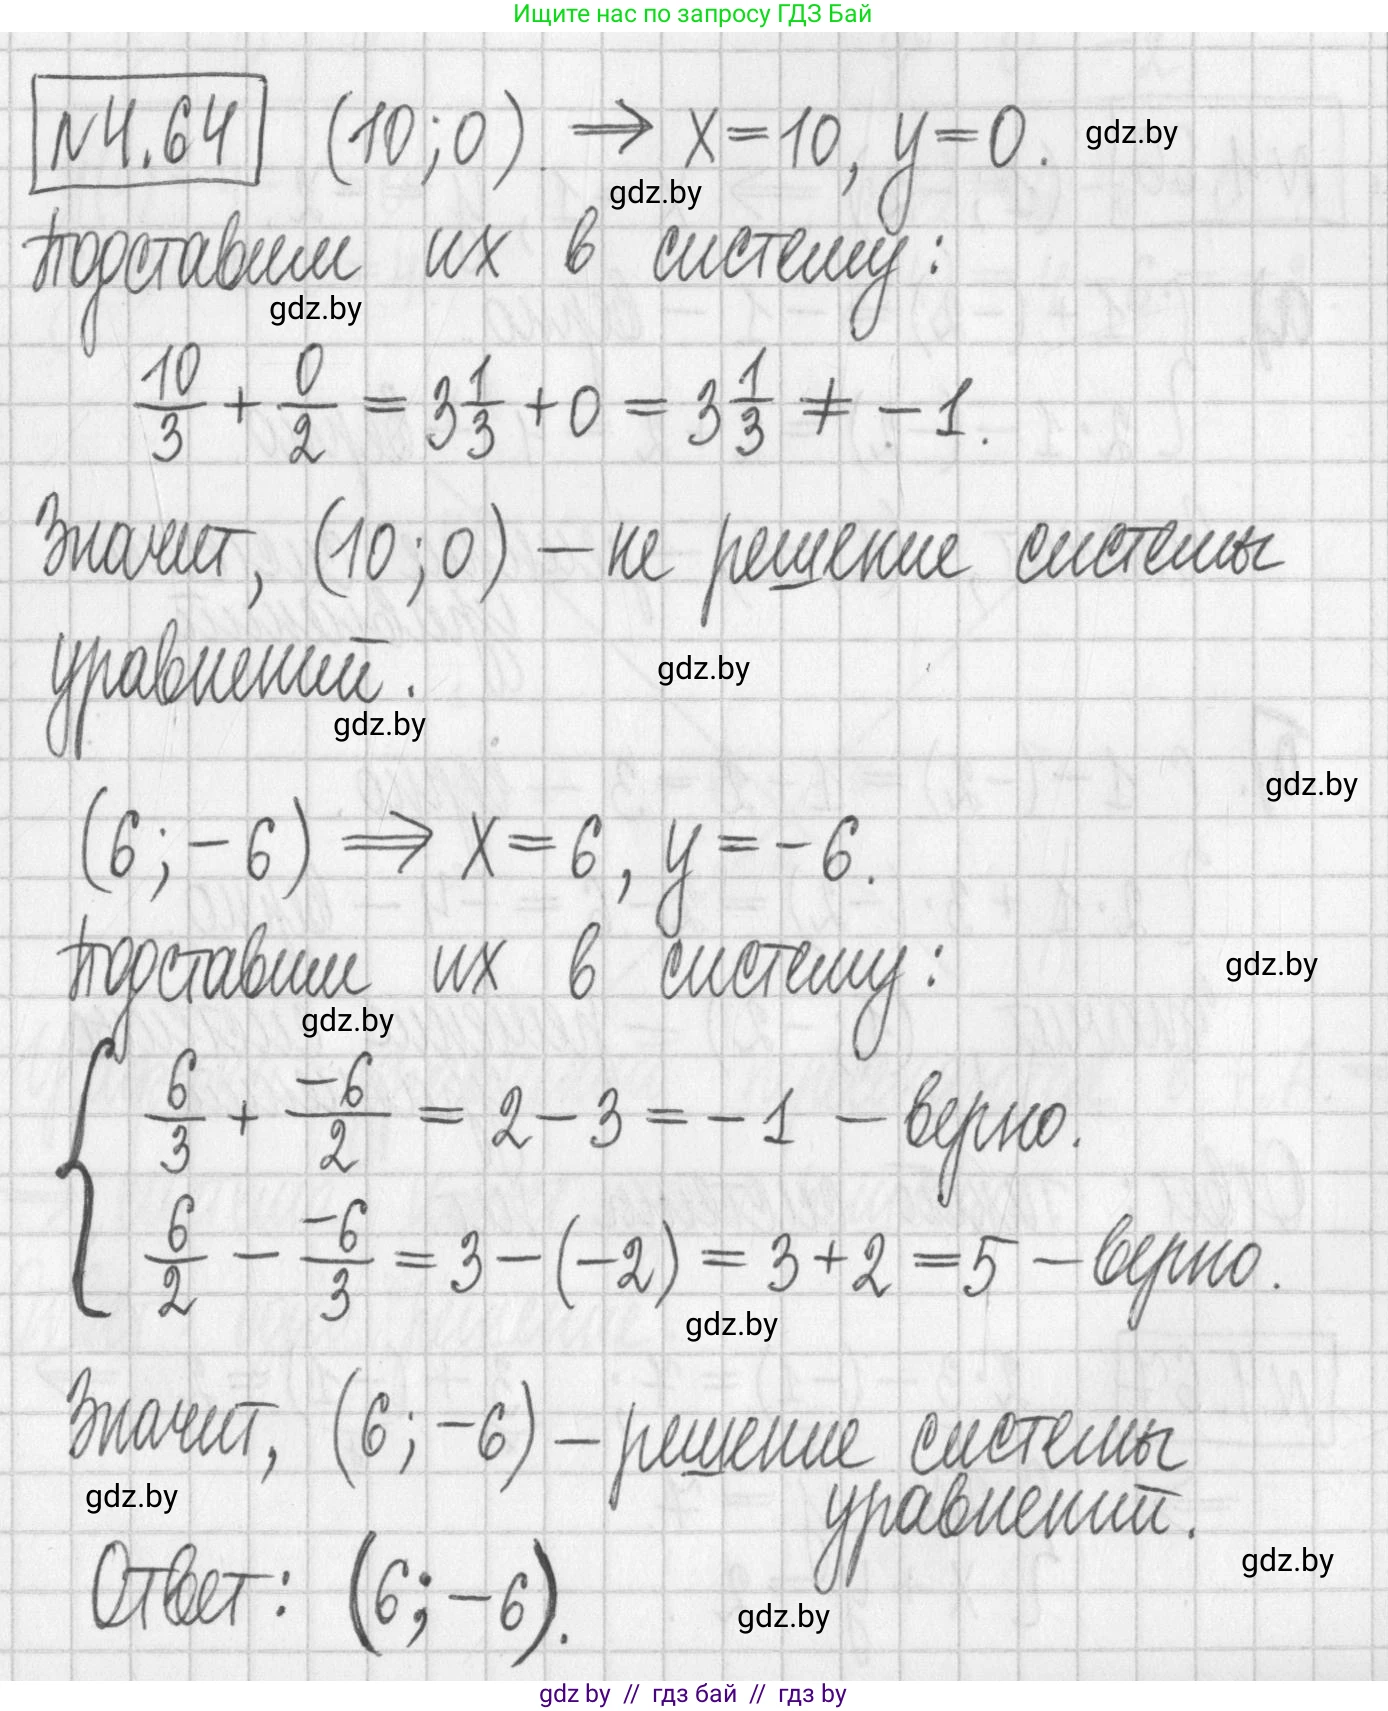 Ищите нас по запросу ГДЗ Бай
№4.64 (10;0). ⇒ x=10, y=0. gdz.by
gdz.by
Подставим их в систему:
gdz.by
10/3 + 0/2 = 3 1/3 + 0 = 3 1/3 ≠ -1.
Значит, (10;0) – не решение системы
уравнений.
gdz.by
gdz.by
gdz.by
(6;-6) ⇒ x=6, y=-6.
Подставим их в систему:
gdz.by
gdz.by
{ 6/3 + -6/2 = 2-3 = -1 – верно.
6/2 - -6/3 = 3-(-2) = 3+2 = 5 – верно.
gdz.by
Значит, (6;-6) – решение системы
gdz.by
уравнений.
gdz.by
Ответ: (6;-6).
gdz.by
gdz by // гдз бай // гдз by